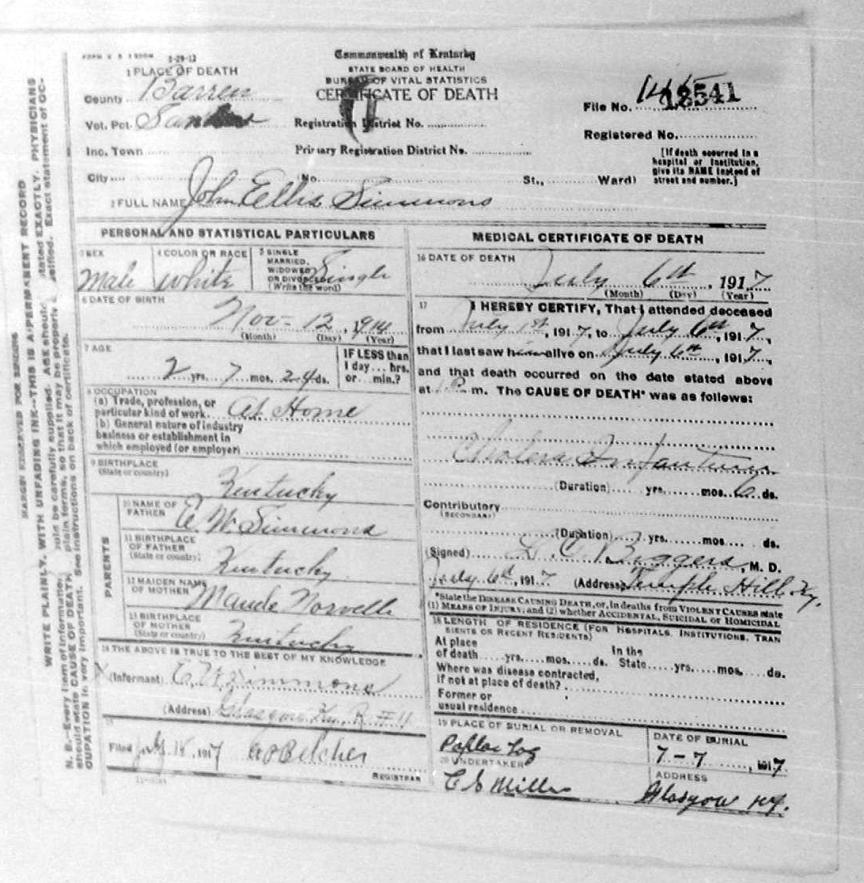 MARGIN RESERVED FOR BINDING
WRITE PLAINLY, WITH UNFADING INK--THIS IS A PERMANENT RECORD
N. B.--Every item of information should be carefully supplied. AGE should be stated EXACTLY. PHYSICIANS
should state CAUSE OF DEATH in plain terms, so that it may be properly classified. Exact statement of OC-
CUPATION is very important. See instructions on back of certificate.
Commonwealth of Kentucky
STATE BOARD OF HEALTH
BUREAU OF VITAL STATISTICS
CERTIFICATE OF DEATH
1 PLACE OF DEATH
County Barren
Vot. Pct.
Inc. Town
City
Registration District No.
Primary Registration District No.
(No. St., Ward)
File No. 18541
Registered No.
[If death occurred in a
hospital or institution,
give its NAME instead of
street and number.]
2 FULL NAME John Ellis Simmons
PERSONAL AND STATISTICAL PARTICULARS
3 SEX
Male
4 COLOR OR RACE
white
5 SINGLE
MARRIED,
WIDOWED
OR DIVORCED
(Write the word)
Single
6 DATE OF BIRTH
Nov- 12, 1914
(Month) (Day) (Year)
7 AGE
2 yrs. 7 mos. 24 ds.
IF LESS than
1 day... hrs.
or... min.?
8 OCCUPATION
(a) Trade, profession, or
particular kind of work At Home
(b) General nature of industry
business or establishment in
which employed (or employer)
9 BIRTHPLACE
(State or country)
Kentucky
PARENTS
10 NAME OF
FATHER
E. W. Simmons
11 BIRTHPLACE
OF FATHER
(State or country)
Kentucky
12 MAIDEN NAME
OF MOTHER
Maude Norvelle
13 BIRTHPLACE
OF MOTHER
(State or country)
Kentucky
14 THE ABOVE IS TRUE TO THE BEST OF MY KNOWLEDGE
(Informant) E W Simmons
(Address) Glasgow Ky. R #4
15
Filed July 18, 1917 Belcher
REGISTRAR
MEDICAL CERTIFICATE OF DEATH
16 DATE OF DEATH
July 6th, 1917
(Month) (Day) (Year)
17 I HEREBY CERTIFY, That I attended deceased
from July 1st, 1917, to July 6th, 1917,
that I last saw him alive on July 6th, 1917,
and that death occurred on the date stated above
at 1 P. m. The CAUSE OF DEATH* was as follows:
Cholera Infantum
(Duration) yrs. mos. 6 ds.
Contributory
(SECONDARY)
(Duration) yrs. mos. ds.
(Signed) Biggers, M. D.
July 6th, 1917 (Address) Temple Hill Ky.
*State the DISEASE CAUSING DEATH, or, in deaths from VIOLENT CAUSES state
(1) MEANS OF INJURY; and (2) whether ACCIDENTAL, SUICIDAL or HOMICIDAL
18 LENGTH OF RESIDENCE (FOR HOSPITALS, INSTITUTIONS, TRAN
SIENTS OR RECENT RESIDENTS)
At place
of death yrs. mos. ds.
In the
State yrs. mos. ds.
Where was disease contracted,
if not at place of death?
Former or
usual residence
19 PLACE OF BURIAL OR REMOVAL
Poplar Log
DATE OF BURIAL
7-7, 1917
20 UNDERTAKER
C S Miller
ADDRESS
Glasgow Ky.